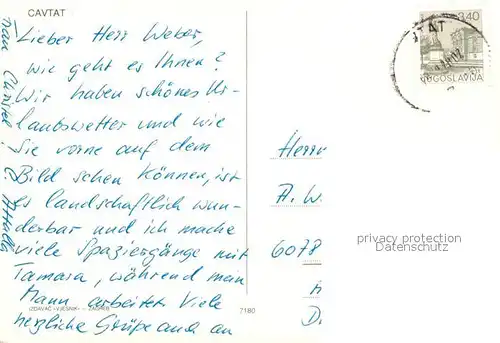 CAVTAT
Lieber Herr Weber,
wie geht es Ihnen?
Wir haben schönes Ur-
laubswetter und wie
Sie vorne auf dem
Bild sehen können, ist
es landschaftlich wun-
derbar und ich mache
viele Spaziergänge mit
Tamara, während mein
Mann arbeitet. Viele
herzliche Grüße auch an
IZDAVAČ »VJESNIK« — ZAGREB
7180
3,40
TAT
JUGOSLAVIJA
Herrn
A. W
6078
privacy protection
Datenschutz
A
D